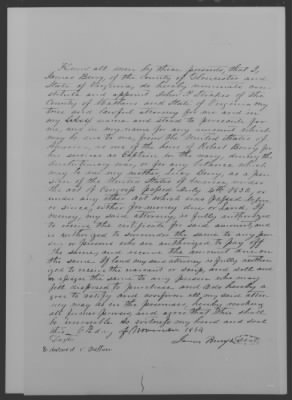 Know all men by these presents, that I
James Berry of the County of Gloucester and
State of Virginia, do hereby nominate con-
stitute and appoint John H. of the
County of Mathews and State of Virginia my
true and lawful attorney for me and in
my name and stead to for
me, and in my name for any amount which
may be due to me from the United States of
America, as one of the heirs of Robert Berry for
his services as Captain in the navy, during the
revolutionary war, or for any balance which
may be due my mother Lucy Berry, as a pen-
sioner of the United States of America, under
the act of Congress passed July 4th or
under any other act which was passed before
or since, either for money due or land. If
money, my said attorney is fully authorized
to receive the certificate for said amount, and
is authorized to surrender the same to any per-
son or persons who are authorized to pay off
the same, and receive the amount due on
the same. If land my said attorney is fully author-
ized to receive warrant or scrip, and sell and
or assign the same to any person who may
feel disposed to purchase, and I do hereby a-
gree to ratify and confirm all my said attor-
ney may do in the premises, hereby revoking
all former powers and agree that this shall
be irrevocable. As witness my hand and seal
this day of November 1834
Teste
James Berry Seal
Edward